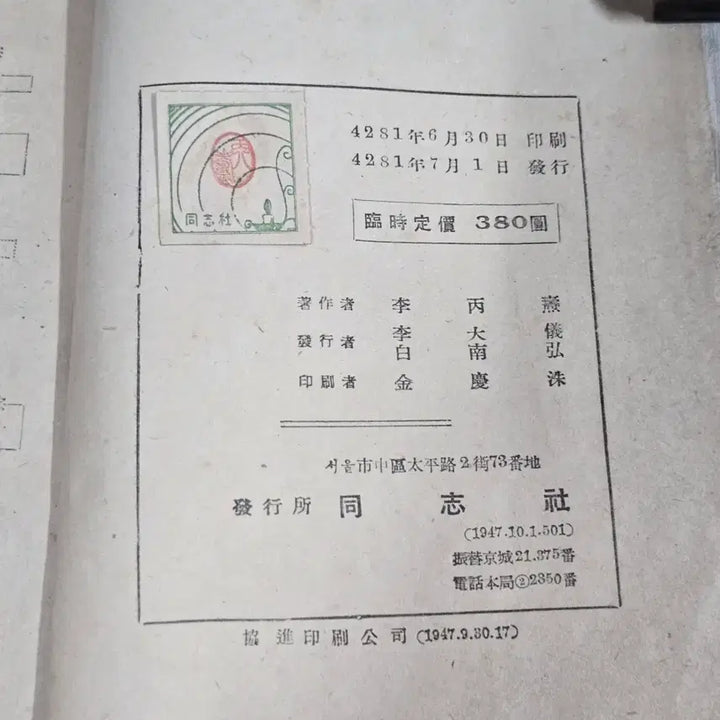 4281年6月30日 印刷
4281年7月1日 發行
同志社
臨時定價 380圓
著作者 李丙燾
發行者 李大儀
白南弘
印刷者 金慶洙
서울市中區太平路2街73番地
發行所 同志社
(1947.10.1.501)
振替京城21.375番
電話本局②2350番
協進印刷公司 (1947.9.30.17)